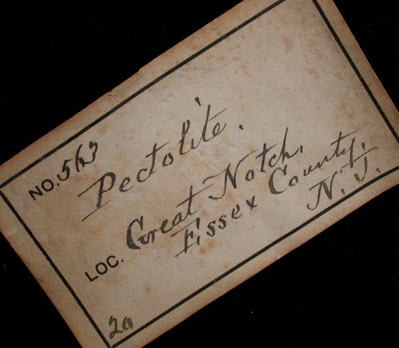 NO. 563
Pectolite.
LOC. Great Notch,
Essex County,
N. J.
20